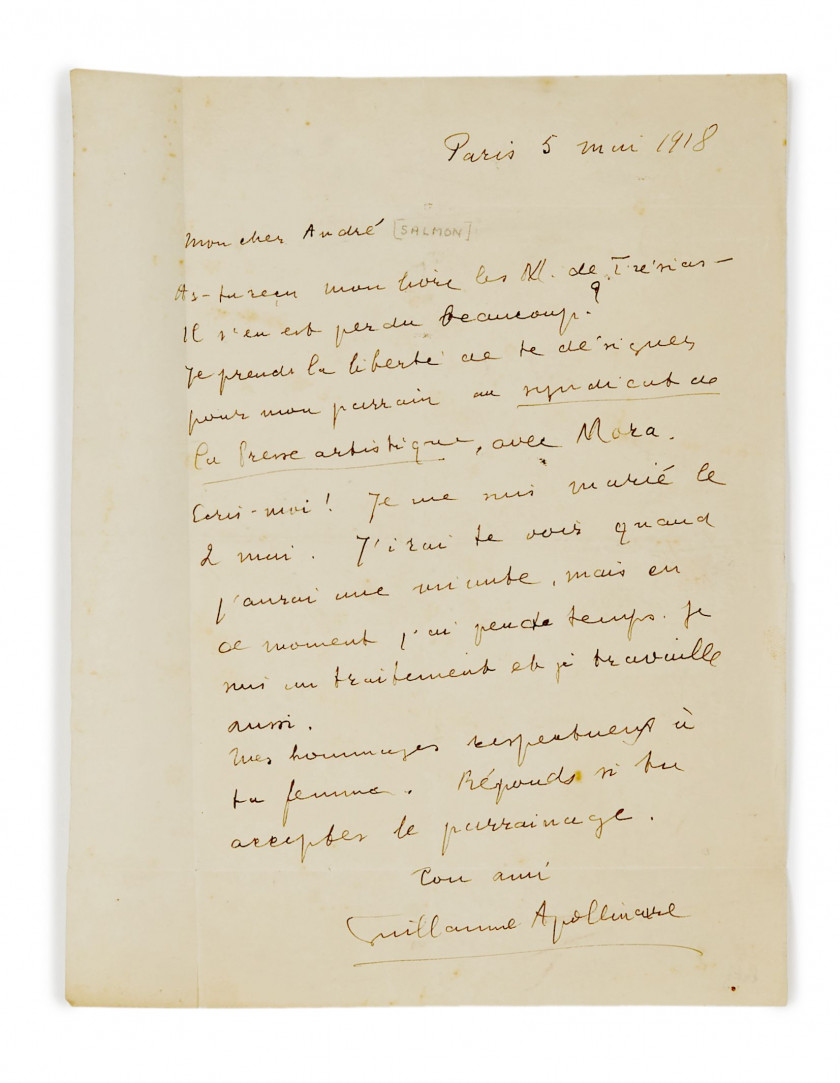 Paris 5 mai 1918
Mon cher André [SALMON]
As-tu reçu mon livre les M. de Tirésias —
Il s'en est perdu beaucoup. ?
Je prends la liberté de te désigner
pour mon parrain au syndicat de
la Presse artistique, avec Mora.
Ecris-moi ! Je me suis marié le
2 mai. J'irai te voir quand
j'aurai une minute, mais en
ce moment j'ai peu de temps. Je
suis un traitement et je travaille
aussi.
Mes hommages respectueux à
ta femme. Réponds si tu
acceptes le parrainage.
Ton ami
Guillaume Apollinaire